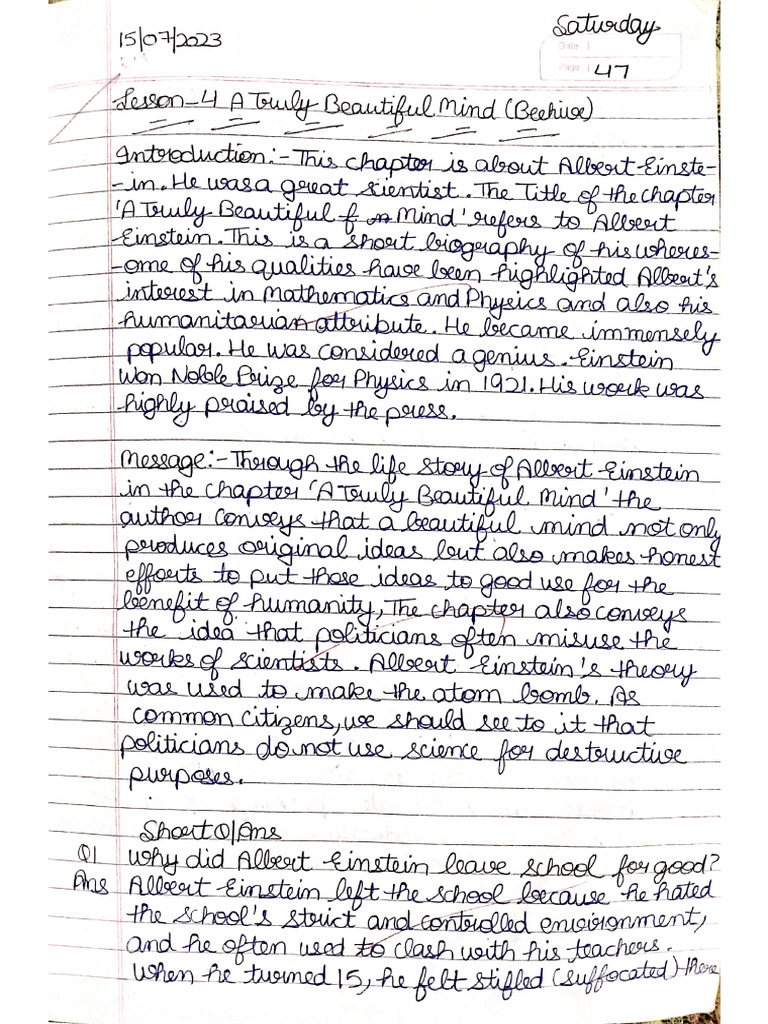 15/07/2023
Saturday
Date
Page 47
Lesson-4 A Truly Beautiful Mind (Beehive)
Introduction:- This chapter is about Albert Einste-
-in. He was a great scientist. The Title of the chapter
'A Truly Beautiful Mind' refers to Albert
Einstein. This is a short biography of his wheres-
-ome of his qualities have been highlighted Albert's
interest in Mathematics and Physics and also his
humanitarian attribute. He became immensely
popular. He was considered a genius. Einstein
won Noble Prize for Physics in 1921. His work was
highly praised by the press.
Message:- Through the life story of Albert Einstein
in the chapter 'A Truly Beautiful Mind' the
author conveys that a beautiful mind not only
produces original ideas but also makes honest
efforts to put those ideas to good use for the
benefit of humanity, The chapter also conveys
the idea that politicians often misuse the
works of scientists. Albert Einstein's theory
was used to make the atom bomb. As
common citizens, we should see to it that
politicians do not use science for destructive
purposes.
Short Q/Ans
Q1 Why did Albert Einstein leave school for good?
Ans Albert Einstein left the school because he hated
the school's strict and controlled environment,
and he often used to clash with his teachers.
When he turned 15, he felt stifled (suffocated) there